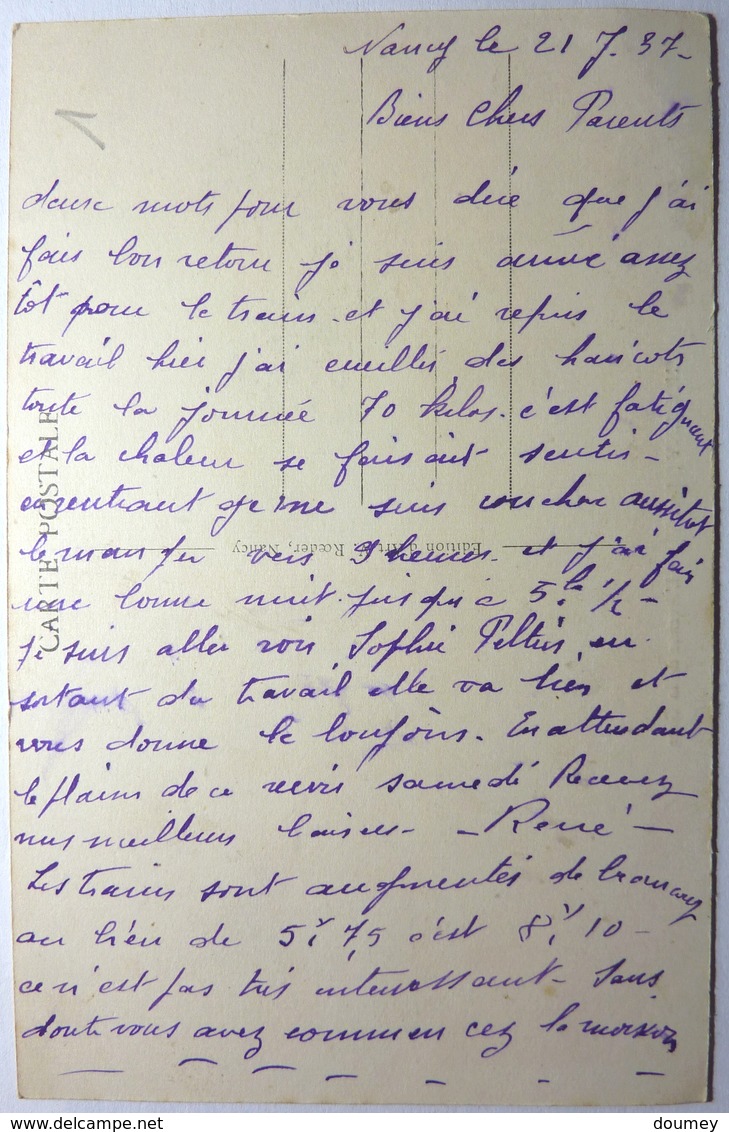 Nancy le 21 J. 37-
Biens Chers Parents
deux mots pour vous dire que j'ai
fais bon retour je suis arrivé assez
tôt pour le train. et j'ai repris le
travail hier j'ai cueillis des haricots
toute la journée 70 kilos. c'est fatiguant
et la chaleur se faisait sentir-
en rentrant je me suis coucher aussitot
le manger vers 9 heures. et j'ai fais
une bonne nuit. jusqu'à 5.h 1/2-
Je suis aller voir Sophie Peltier en
sortant du travail elle va bien et
vous donne le bonjour. En attendant
le plaisir de ce revoir samedi Recevez
mes meilleurs baisers- -René-
Les trains sont augmentés de
au lieu de 5f,75 c'est 8f,10-
ce n'est pas très interressant- Sans
doute vous avez commencez la moisson
CARTE POSTALE
Edition d'Art, Rœder, Nancy
1
doumey